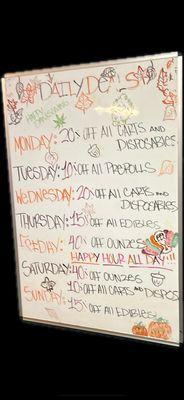 DAILY DEALS
HAPPY
MONDAY: 20% OFF All CARTS AND
DISPOSABLES
TUESDAY: 10% OFF All PREROLLS
WEDNESDAY: 20% OFF All CARTS AND
DISPOSABLES
THURSDAY: 15% OFF All EDIBLES
FRIDAY: 40% OFF OUNCES
HAPPY HOUR ALL DAY!!!
SATURDAY: 40% OFF OUNCES
SUNDAY: 10% OFF All CARTS AND DISPOS
15% OFF All EDIBLES